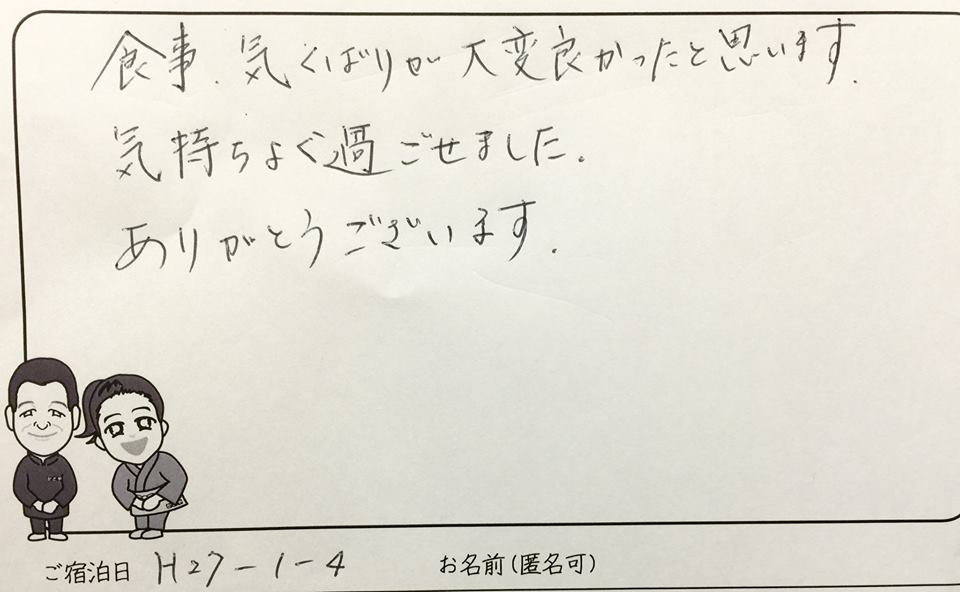 食事、気くばりが大変良かったと思います.
気持ちよく過ごせました.
ありがとうございます.
ご宿泊日 H27-1-4 お名前(匿名可)